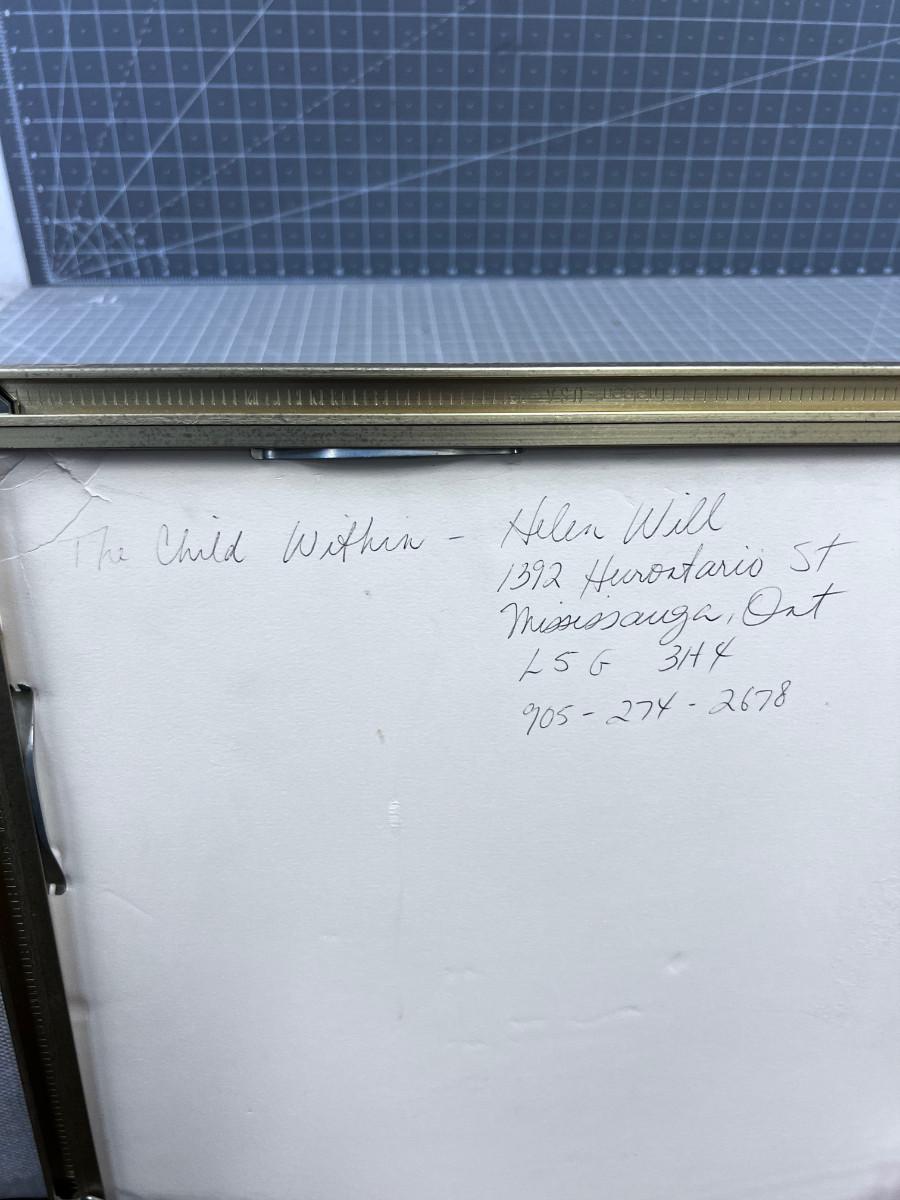 The Child Within - Helen Will
1392 Hurontario St
Mississauga, Ont
L5G 3H4
905-274-2678